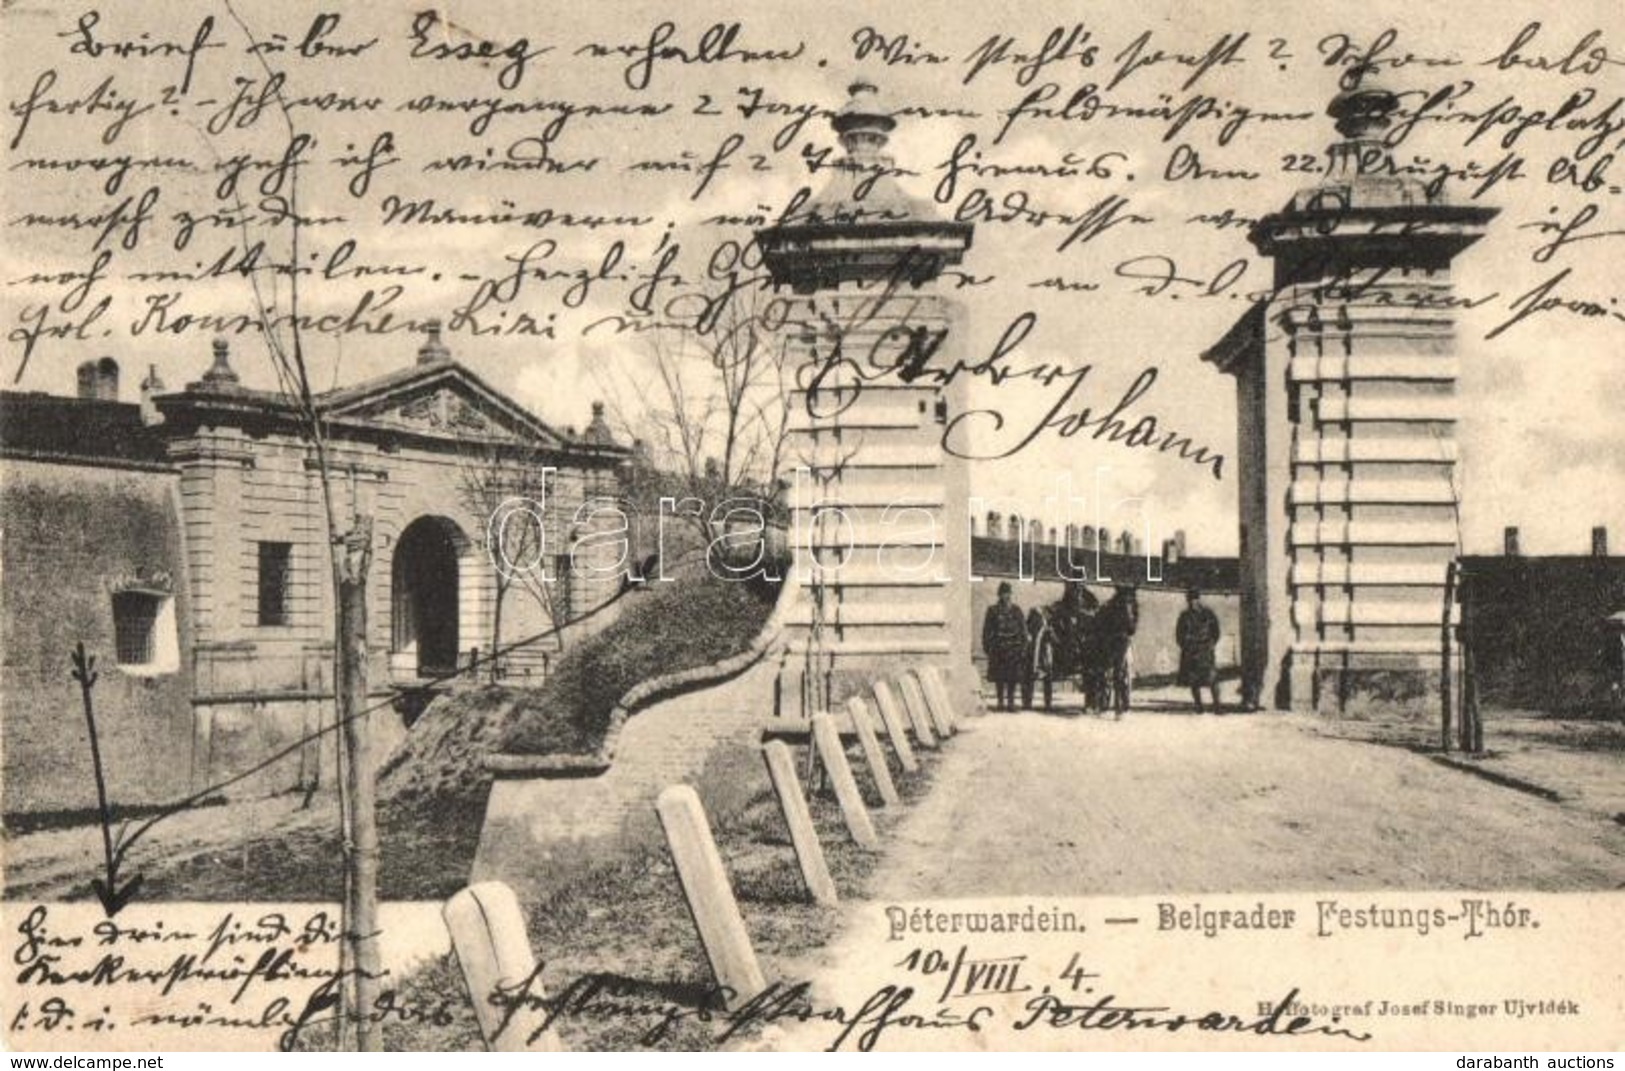 Brief über Esseg erhalten. Wie steht's sonst? Schon bald
fertig? - Ich war vergangene 2 Tage am feldmäßigen Schießplatz,
morgen geh' ich wieder auf 2 Tage hinaus. Am 22. August Ab-
marsch zu den Manövern; nähere Adresse werde ich
noch mitteilen. - Herzliche Grüße an d. l. Eltern sowie
Frl. Kousinchen Lizi und
Johann
darabanth
Péterwardein. — Belgrader Festungs-Thór.
10./VIII. 4.
Hier drin sind die
Kerkersträflinge
d. i. nämlich das Festungsstrafhaus Peterwardein
Hoffotograf Josef Singer Ujvidék
www.darabanth.com
darabanth auctions